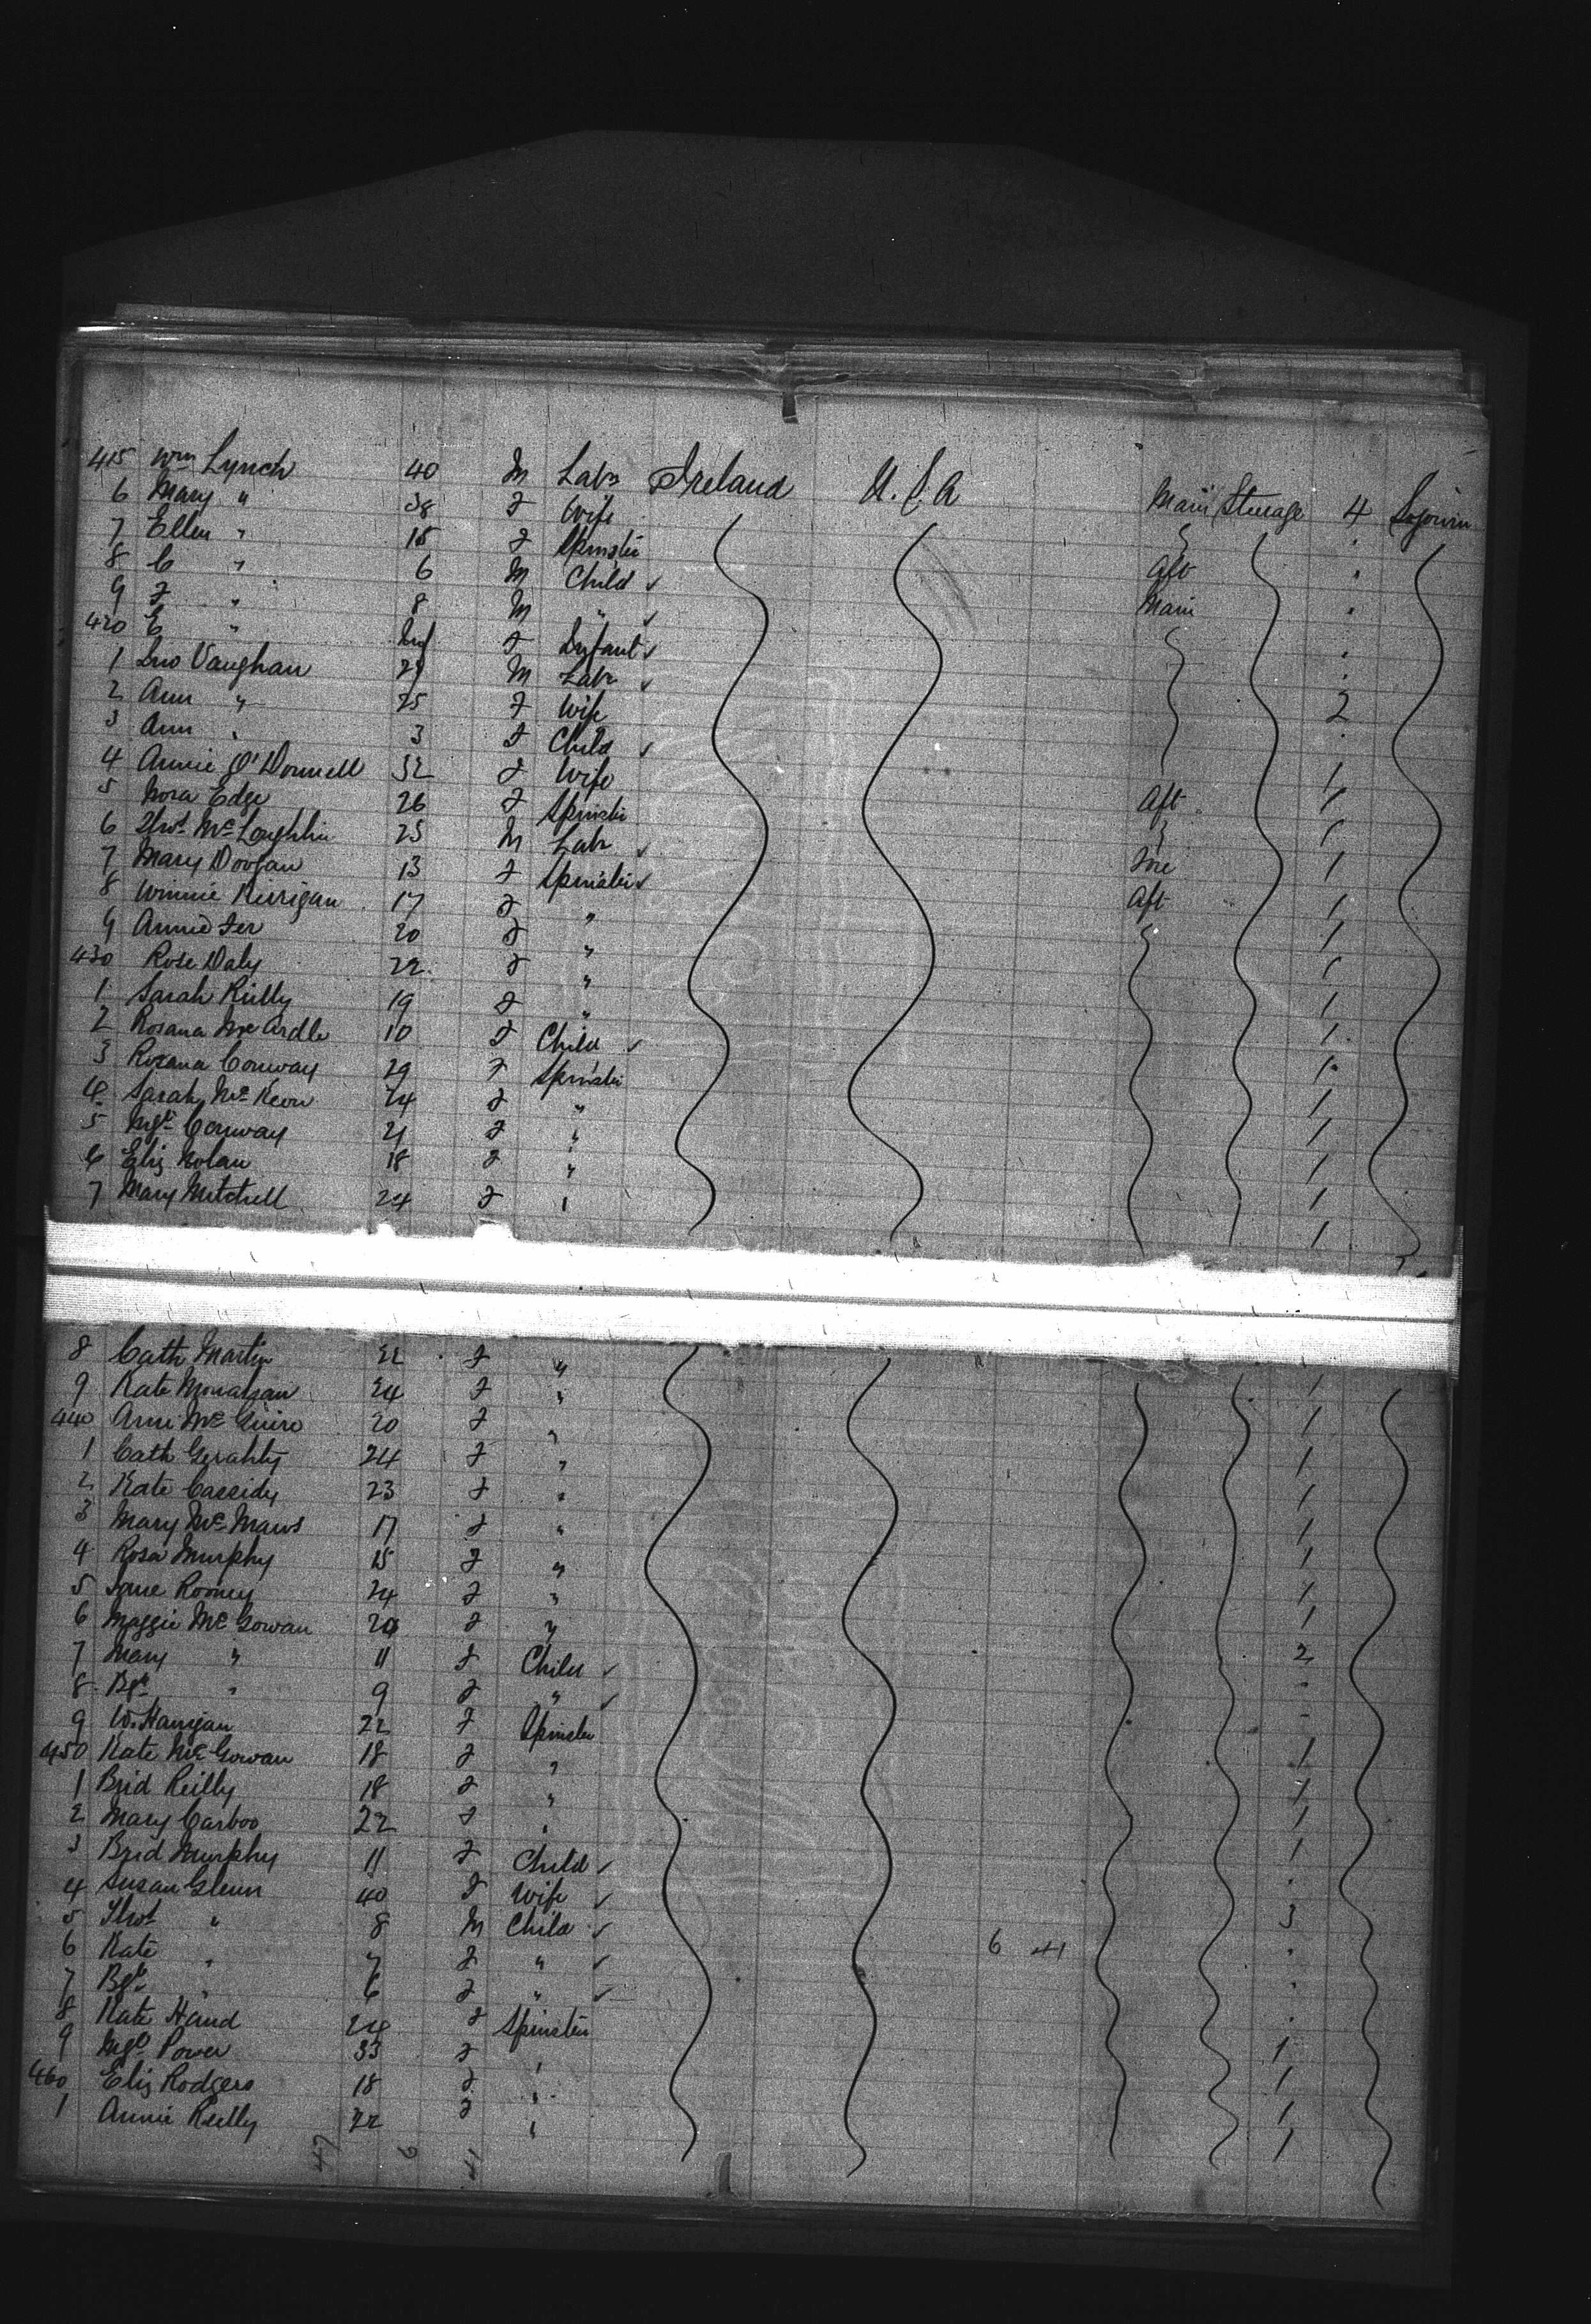 415 Wm Lynch 40 M Labr Ireland U.S.A Main Steerage 4 Sojourn
6 Mary " 38 F Wife
7 Ellen " 15 F Spinster
8 C " 6 M Child ✓ Aft
9 F " 8 M " ✓ Main
420 E " Inf F Infant ✓
1 Jno Vaughan 29 M Labr ✓
2 Ann " 25 F Wife 2
3 Ann " 3 F Child ✓
4 Annie O'Donnell 32 F Wife 1
5 Nora Edge 26 F Spinster Aft 1
6 Thos McLoughlin 25 M Labr ✓ 1
7 Mary 13 F Spinster ✓ Fore 1
8 Winnie Kerrigan 17 F " Aft 1
9 Annie 20 F " 1
430 Rose Daly 22 F " 1
1 Sarah Reilly 19 F " 1
2 Rosana McArdle 10 F Child ✓ 1
3 Rosana Conway 29 F Spinster 1
4 Sarah McKeon 24 F " 1
5 Mgt Conway 21 F " 1
6 Eliz Nolan 18 F " 1
7 Mary Mitchell 24 F " 1
8 Cath Martin 22 F "
9 Kate Monahan 24 F " 1
440 Ann McGuire 20 F " 1
1 Cath Gerahty 24 F " 1
2 Kate Cassidy 23 F " 1
3 Mary McManus 17 F " 1
4 Rosa Murphy 15 F " 1
5 Jane Rooney 24 F " 1
6 Maggie McGowan 20 F " 1
7 Mary " 11 F Child ✓ 2
8 Bgt " 9 F " ✓
9 W. 22 F Spinster
450 Kate McGowan 18 F " 1
1 Brid Reilly 18 F " 1
2 Mary 22 F " 1
3 Brid Murphy 11 F Child ✓ 1
4 Susan Glenn 40 F Wife ✓
5 Thos " 8 M Child ✓ 3
6 Kate " 7 F " ✓ 6 41
7 Bgt " 6 F " ✓
8 Kate Hand 24 F Spinster
9 Mgt Power 33 F " 1
460 Eliz Rodgers 18 F " 1
1 Annie Reilly 22 F " 1
47 6 41